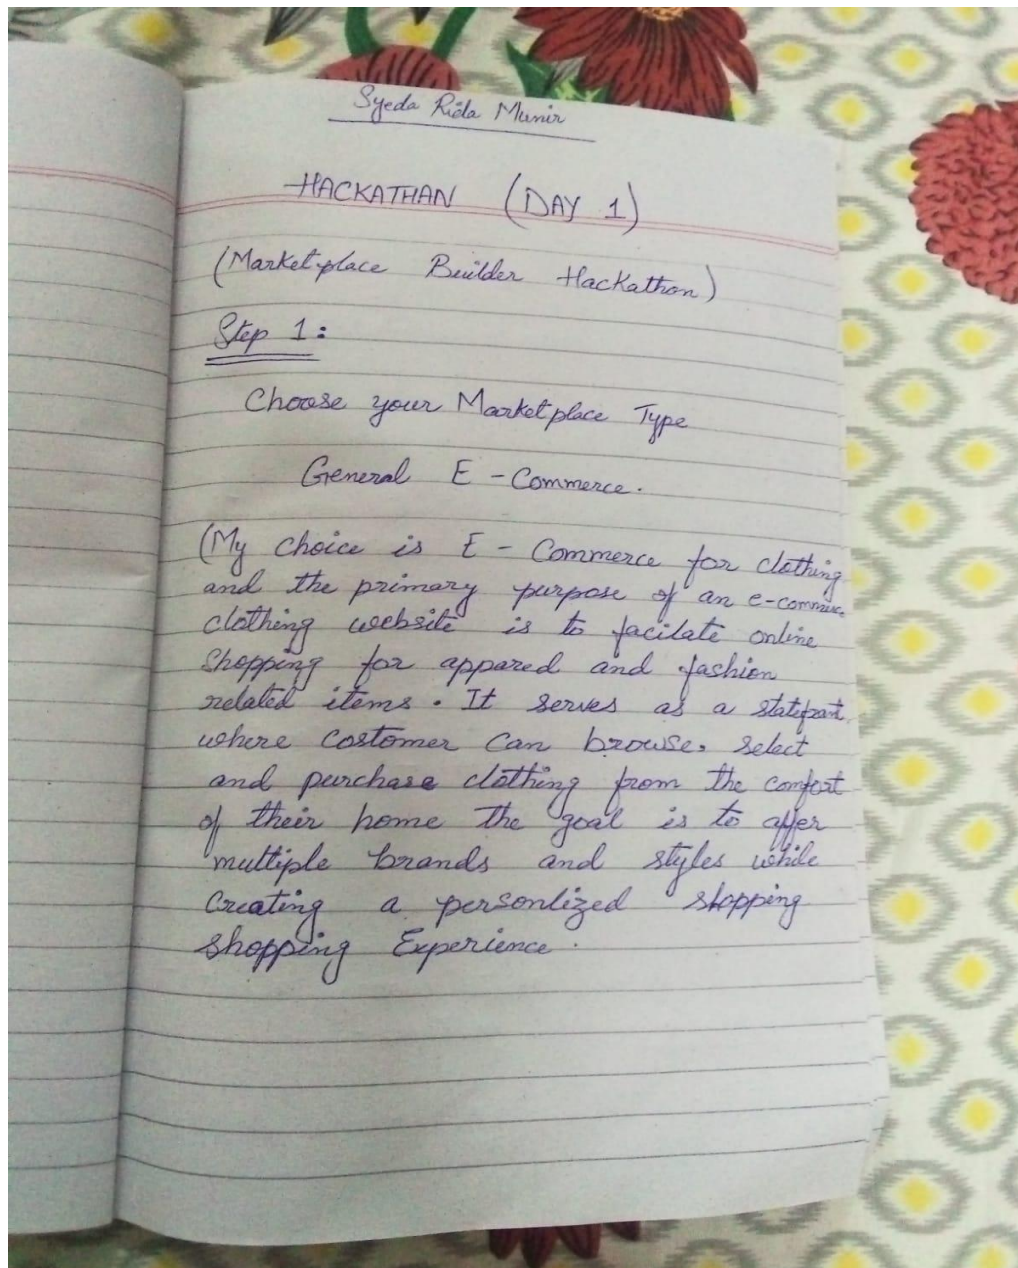 Syeda Rida Munir
HACKATHAN (DAY 1)
(Marketplace Builder Hackathon)
Step 1:
Choose your Marketplace Type
General E - Commerce.
(My choice is E - Commerce for clothing
and the primary purpose of an e-commerce
clothing website is to facilate online
shopping for appared and fashion
related items. It serves as a
where costomer can browse, select
and purchase clothing from the comfort
of their home the goal is to affer
multiple brands and styles while
creating a personlized shopping
shopping Experience.